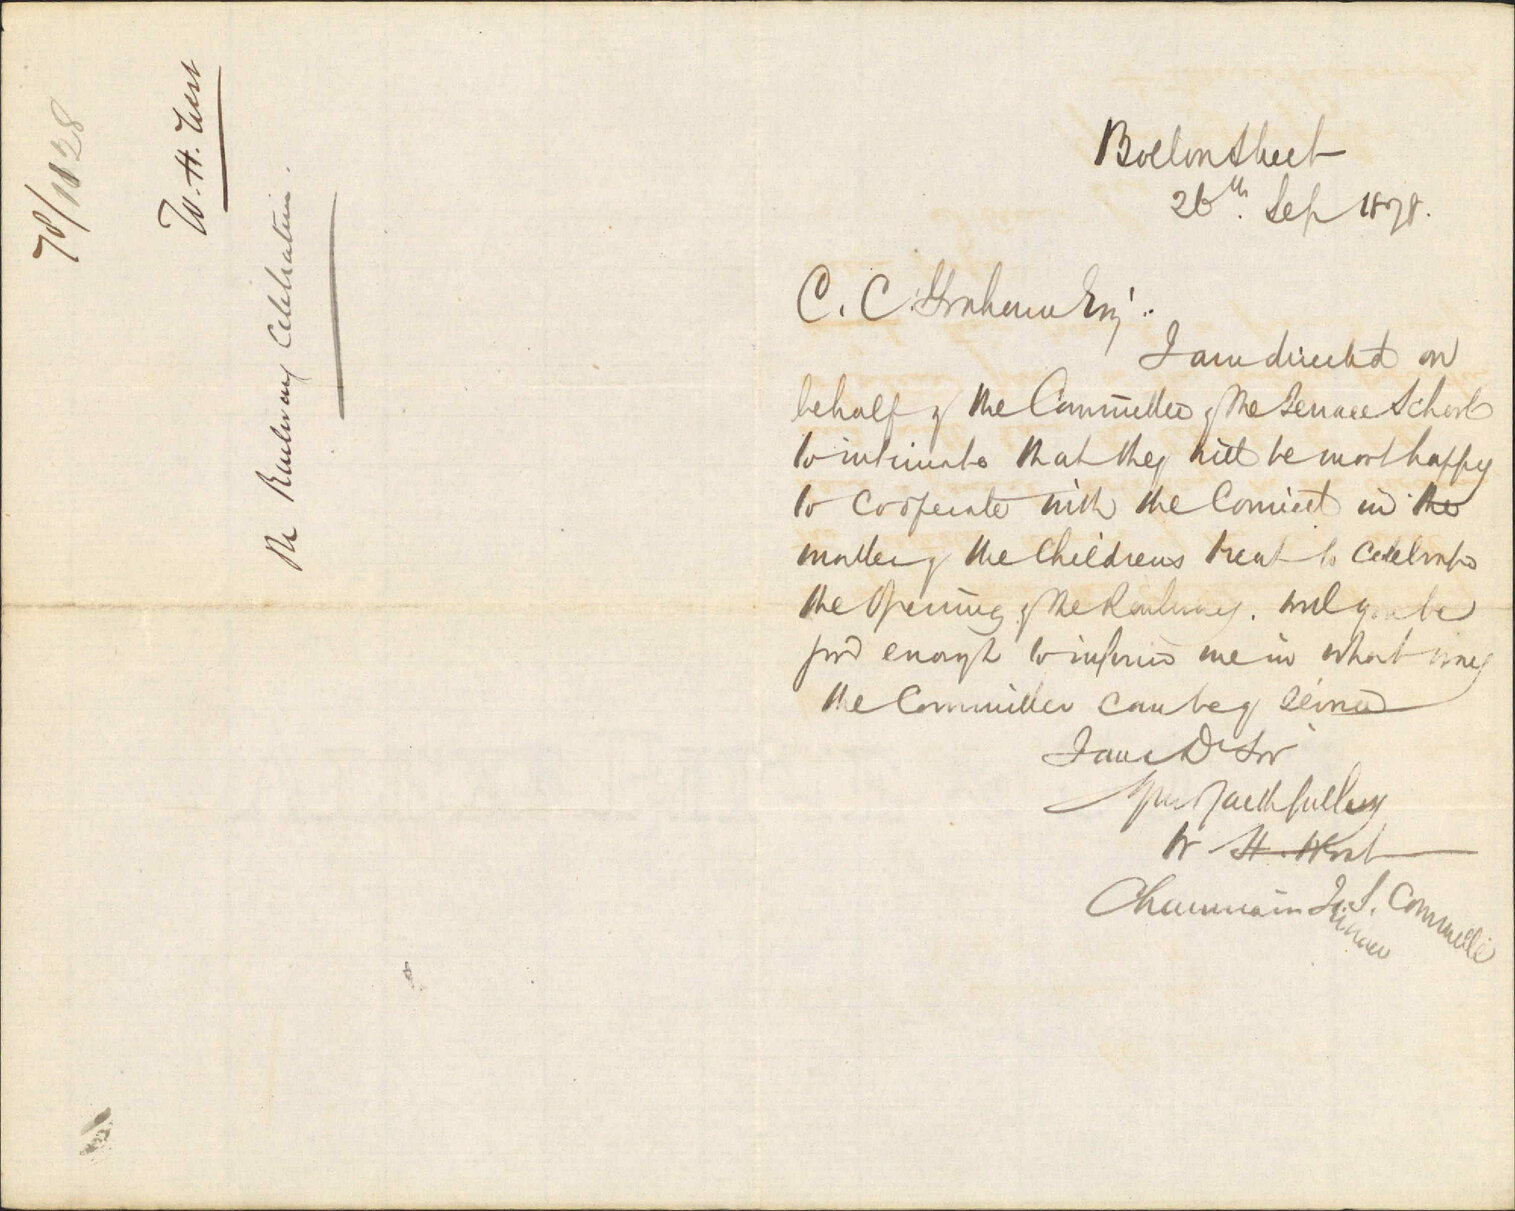 78/1028
W. H. West
Re Railway Celebration.
Boelon Street
26th. Sep 1878.
C. C. Grahame Esq.
I am directed on
behalf of the Committee of the Terrace School
to intimate that they will be most happy
to cooperate with the Comieet in the
matter of the Childrens treat to celebrate
the Opening of the Railway. Will you be
good enough to inform me in what way
the Committee can be of service
I am Dr Sir
Yours Faithfully
W H. West
Chairman T. S. Committee